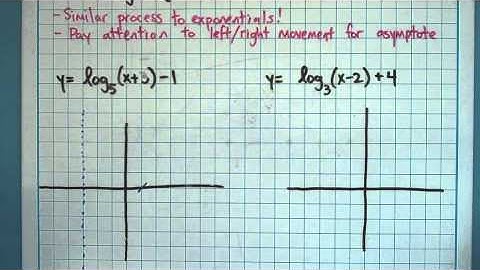 - Similar process to exponentials!
- Pay attention to left/right movement for asymptote
y= log₅(x+3)-1
y= log₃(x-2)+4